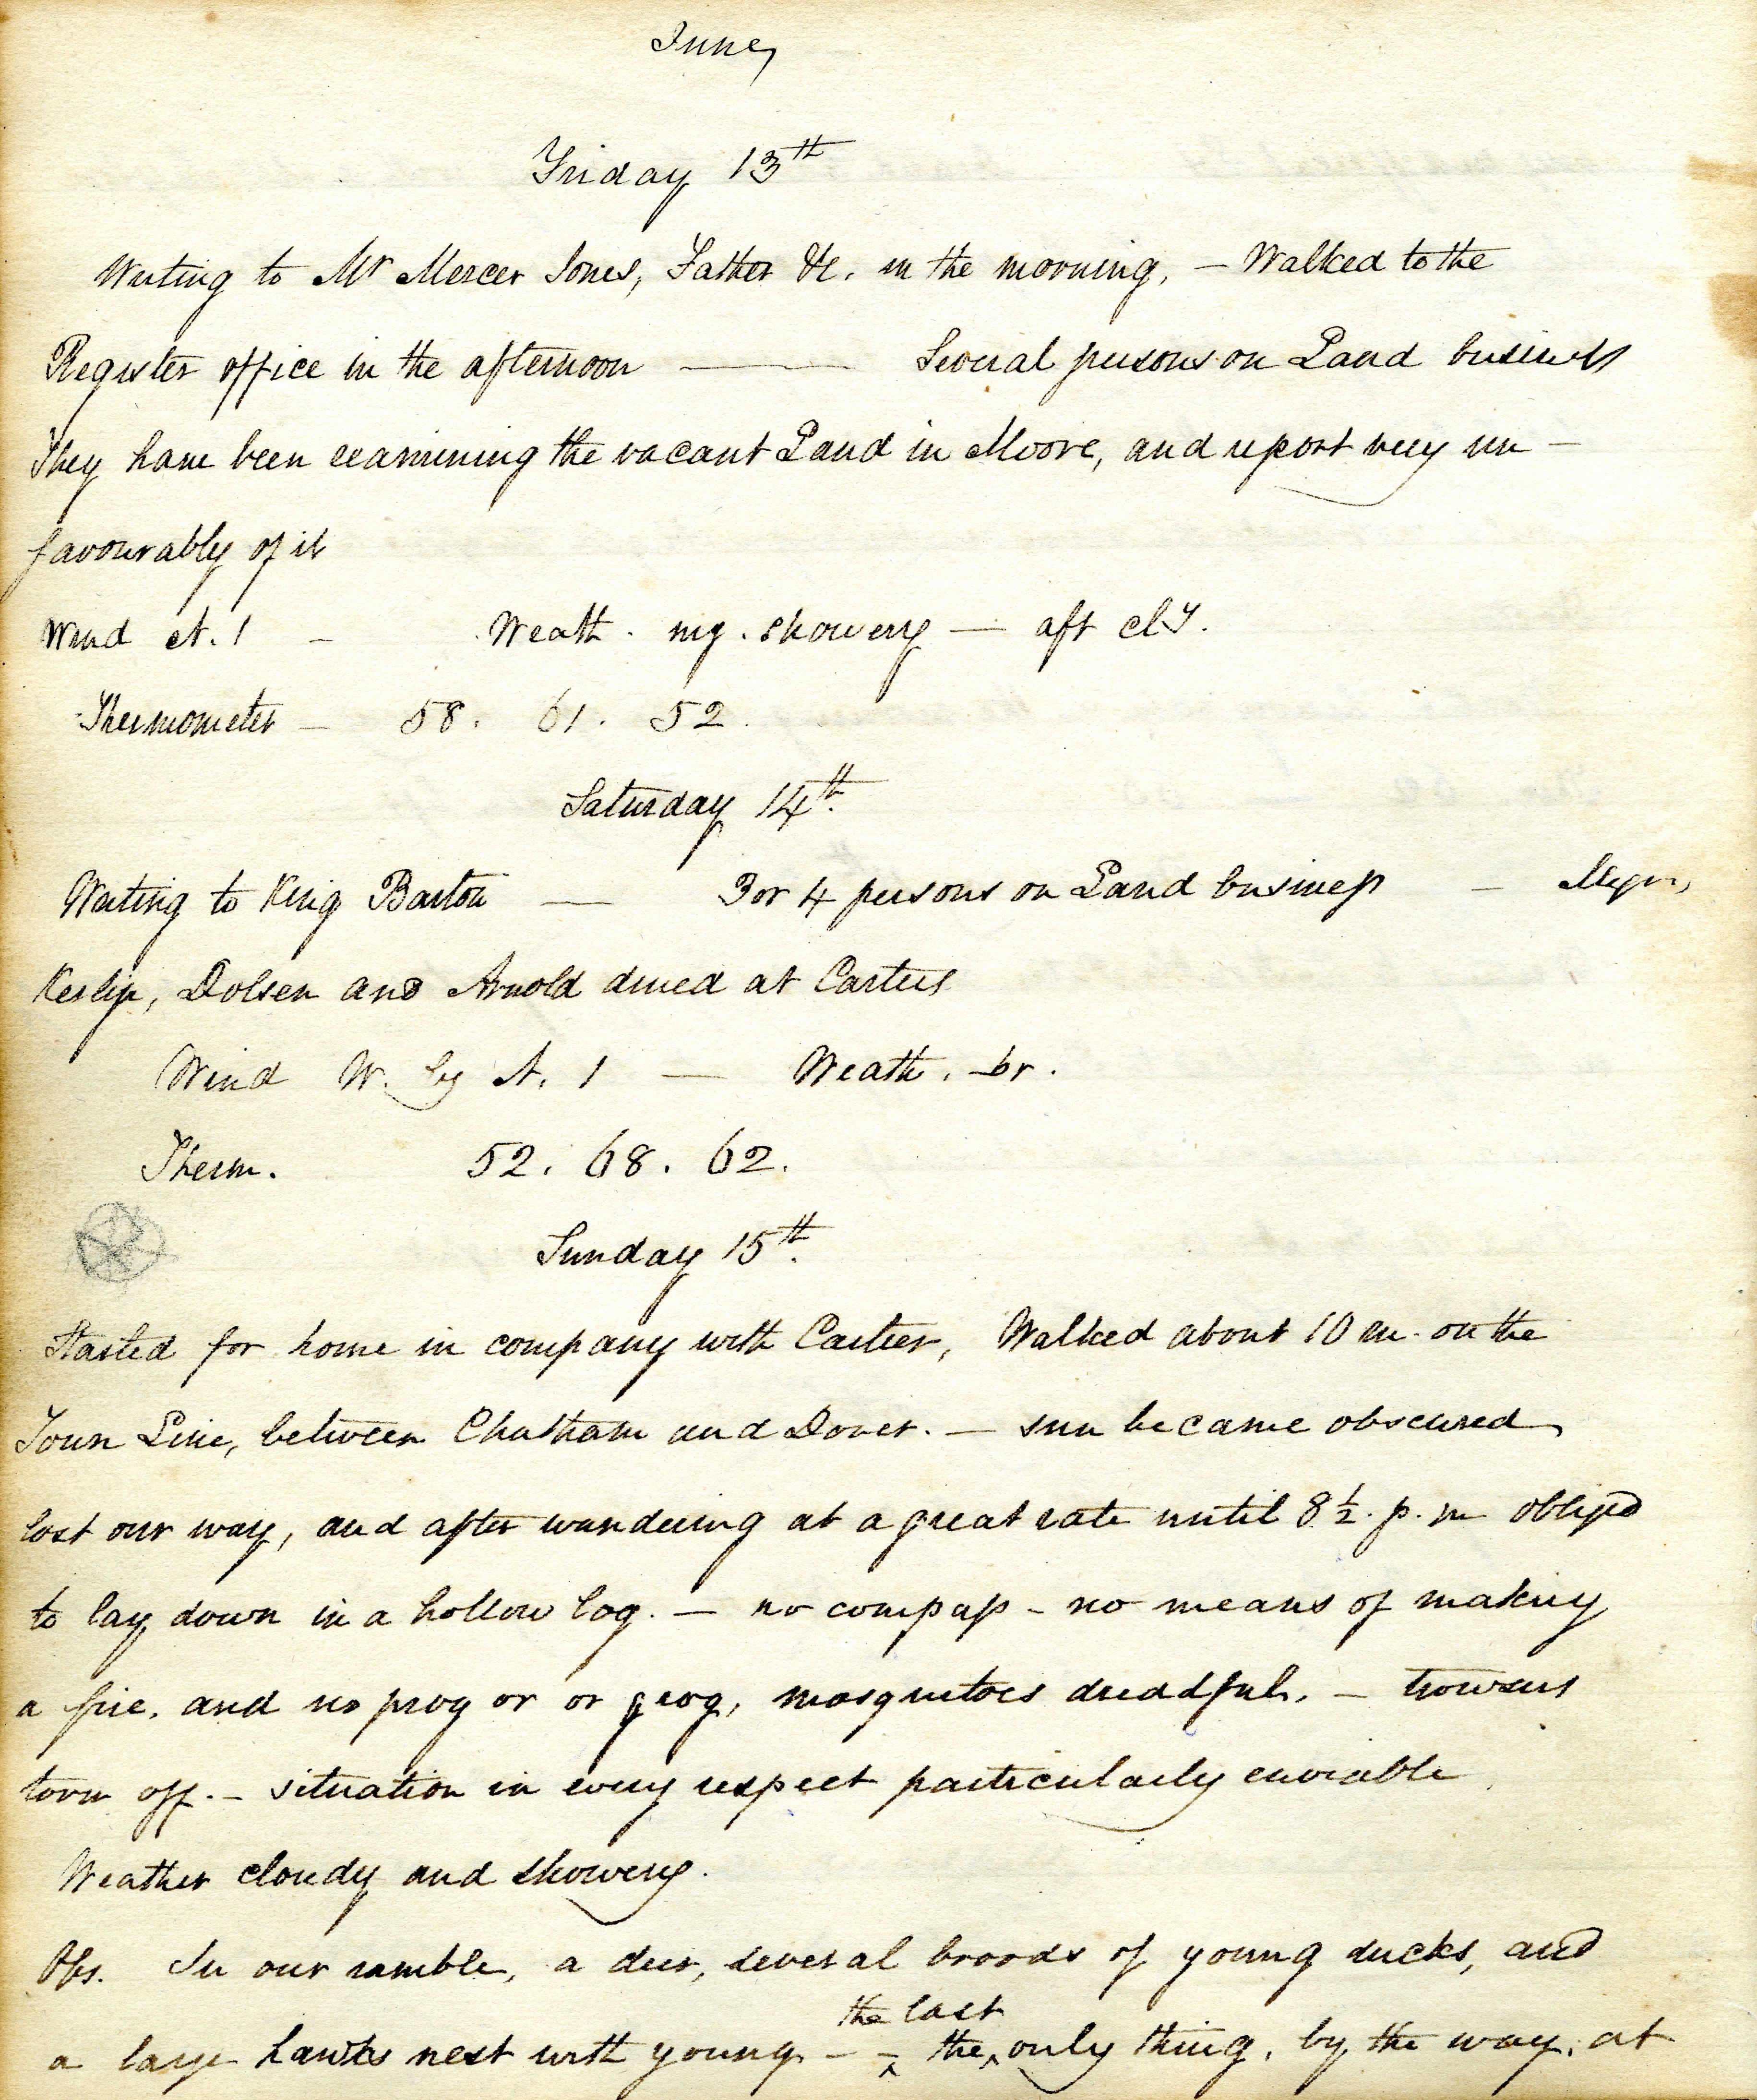 June,
Friday 13th
Writing to Mr Mercer Jones, Father &c. in the morning, — Walked to the
Register office in the afternoon ——— Several persons on Land business
They have been examining the vacant Land in Moore, and report very un-
favourably of it
Wind N. 1 — Weath. mg. showery — aft cly.
Thermometer — 58. 61. 52.
Saturday 14th.
Writing to King Barton — 3 or 4 persons on Land business —
Keslip, Dolsen and Arnold dined at Carters
Wind W. by N. 1 — Weath. br.
Therm. 52. 68. 62.
Sunday 15th.
Started for home in company with Cartier, Walked about 10 m. on the
Town Line, between Chatham and Dover. — sun became obscured
lost our way, and after wandering at a great rate until 8½. p. m obliged
to lay down in a hollow log. — no compass — no means of making
a fire, and no prog or or grog, mosquetoes dreadful, — trowsers
torn off. — situation in every respect particularly enviable
Weather cloudy and showery.
Obs. In our ramble, a deer, several broods of young ducks, and
the last
a large hawks nest with young — — the only thing, by the way, at